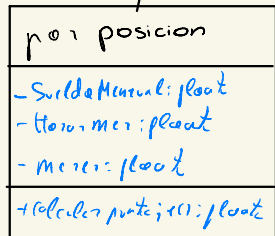 por posicion
- Sueldo Mensual: float
- Horas mes: float
- meses: float
+ Calcular puntaje(): float